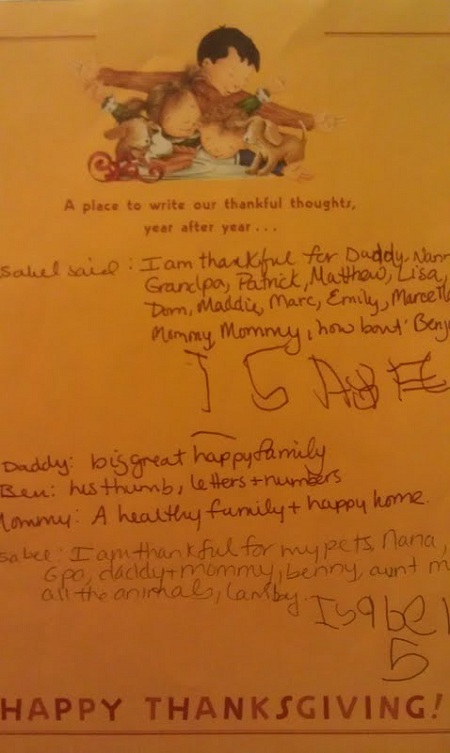 A place to write our thankful thoughts,
year after year...
sabel said: I am thankful for Daddy, Nann
Grandpa, Patrick, Matthew, Lisa,
Dom, Maddie, Marc, Emily, Marcell
Mommy, Mommy, how bout' Benj
I S A B E
Daddy: big great happy family
Ben: his thumb, letters + numbers
Mommy: A healthy family + happy home.
sabel: I am thankful for my pets, Nana,
Gpa, daddy + mommy, benny, aunt m
all the animals, Lamby.
Isabel
5
HAPPY THANKSGIVING!